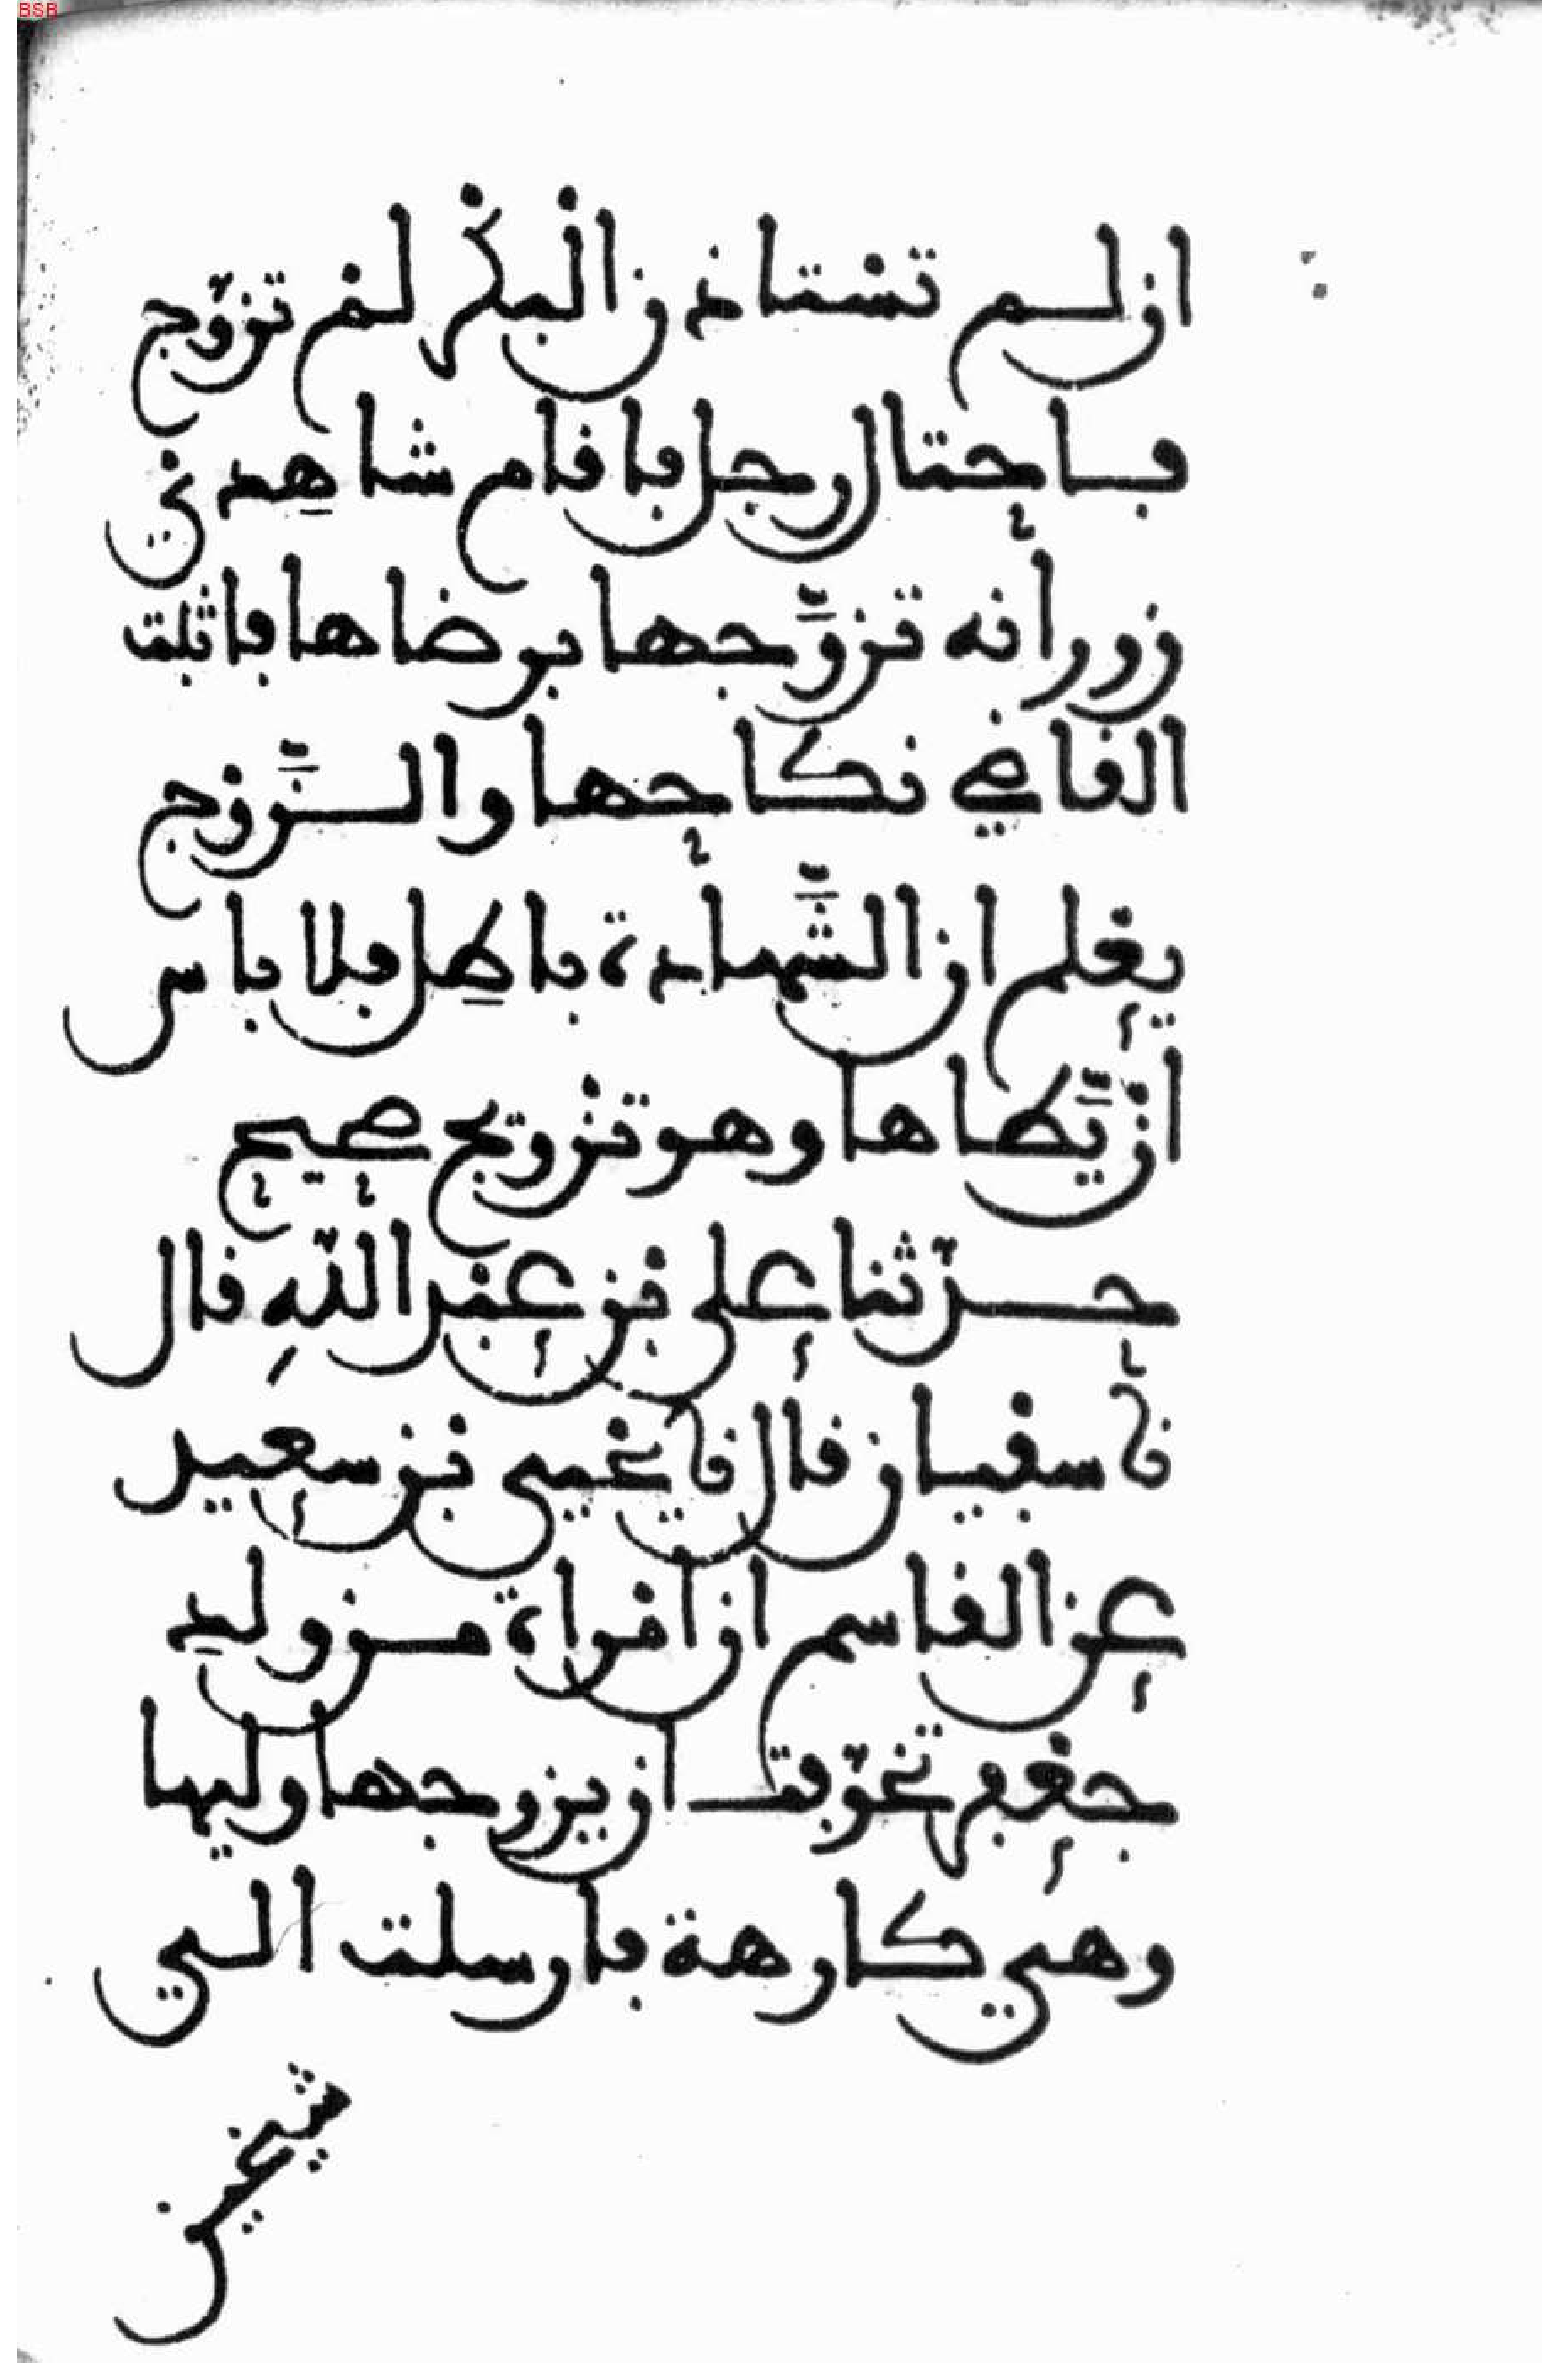 BSB
ان لم تستاذن البكر لم تزوّج
فاحتال رجل فاقام شاهدي
زور انه تزوّجها برضاها فاثبت
القاضي نكاحها والزّوج
يعلم ان الشّهادة باطل فلا باس
ان يّطاها وهو تزويج صحيح
حدّثنا علي بن عبد اللّهِ قال
نا سفيان قال نا يحيى بن سعيد
عن القاسم ان امراة من ولدِ
جعفر تخوّفت ان يزوجها وليها
وهي كارهة فارسلت الي
شيخين